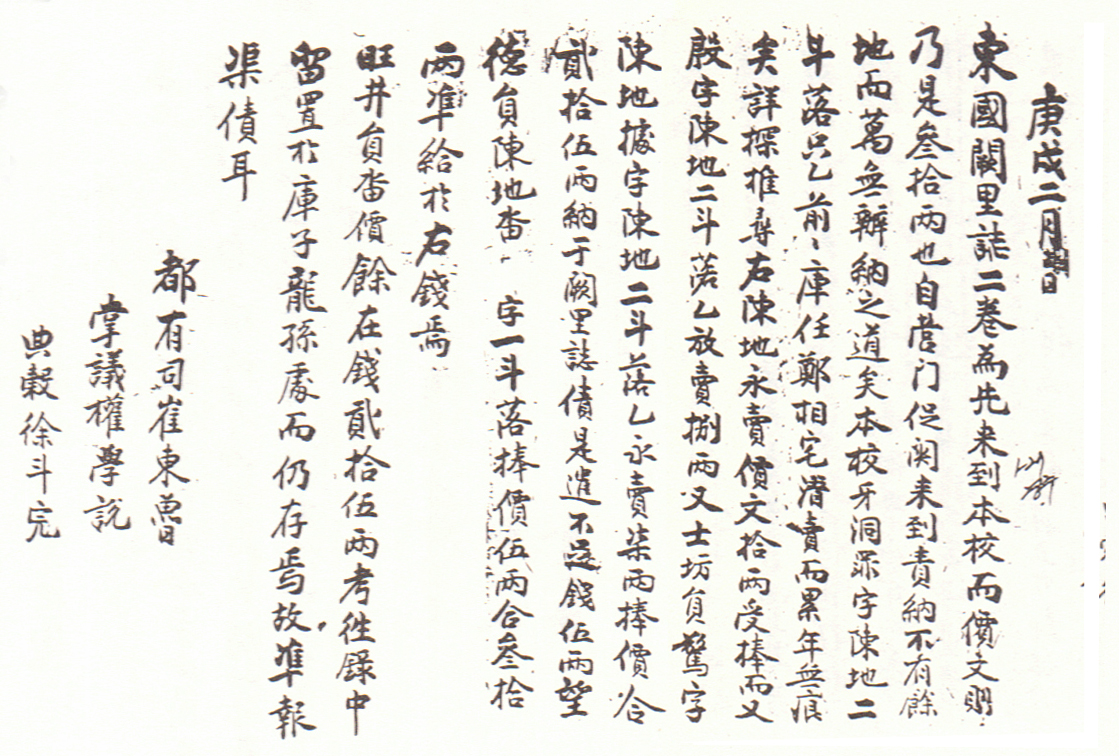 庚戌二月 日
東國闕里誌二卷為先来到本校而價文則
乃是叄拾两也自营门促関来到責納不有餘
地而萬無辦納之道矣本校牙洞罪字陳地二
斗落只乙前〻庫任鄭相宅潜賣而累年無痕
矣詳探推尋右陳地永賣價文拾两受捧而又
殷字陳地二斗落乙放賣捌两又士坊員驚字
陳地據字陳地二斗落乙永賣柒两捧價合
貳拾伍两納于闕里誌債是遣不足錢伍两望
德員陳地畓 字一斗落捧價伍两合叄拾
两準給於右錢焉
旺井員畓價餘在錢貳拾伍两考徃錄中
留置於庫子龍孫處而仍存焉故準報
渠債耳
都有司崔東曾
掌議權學說
典穀徐斗完